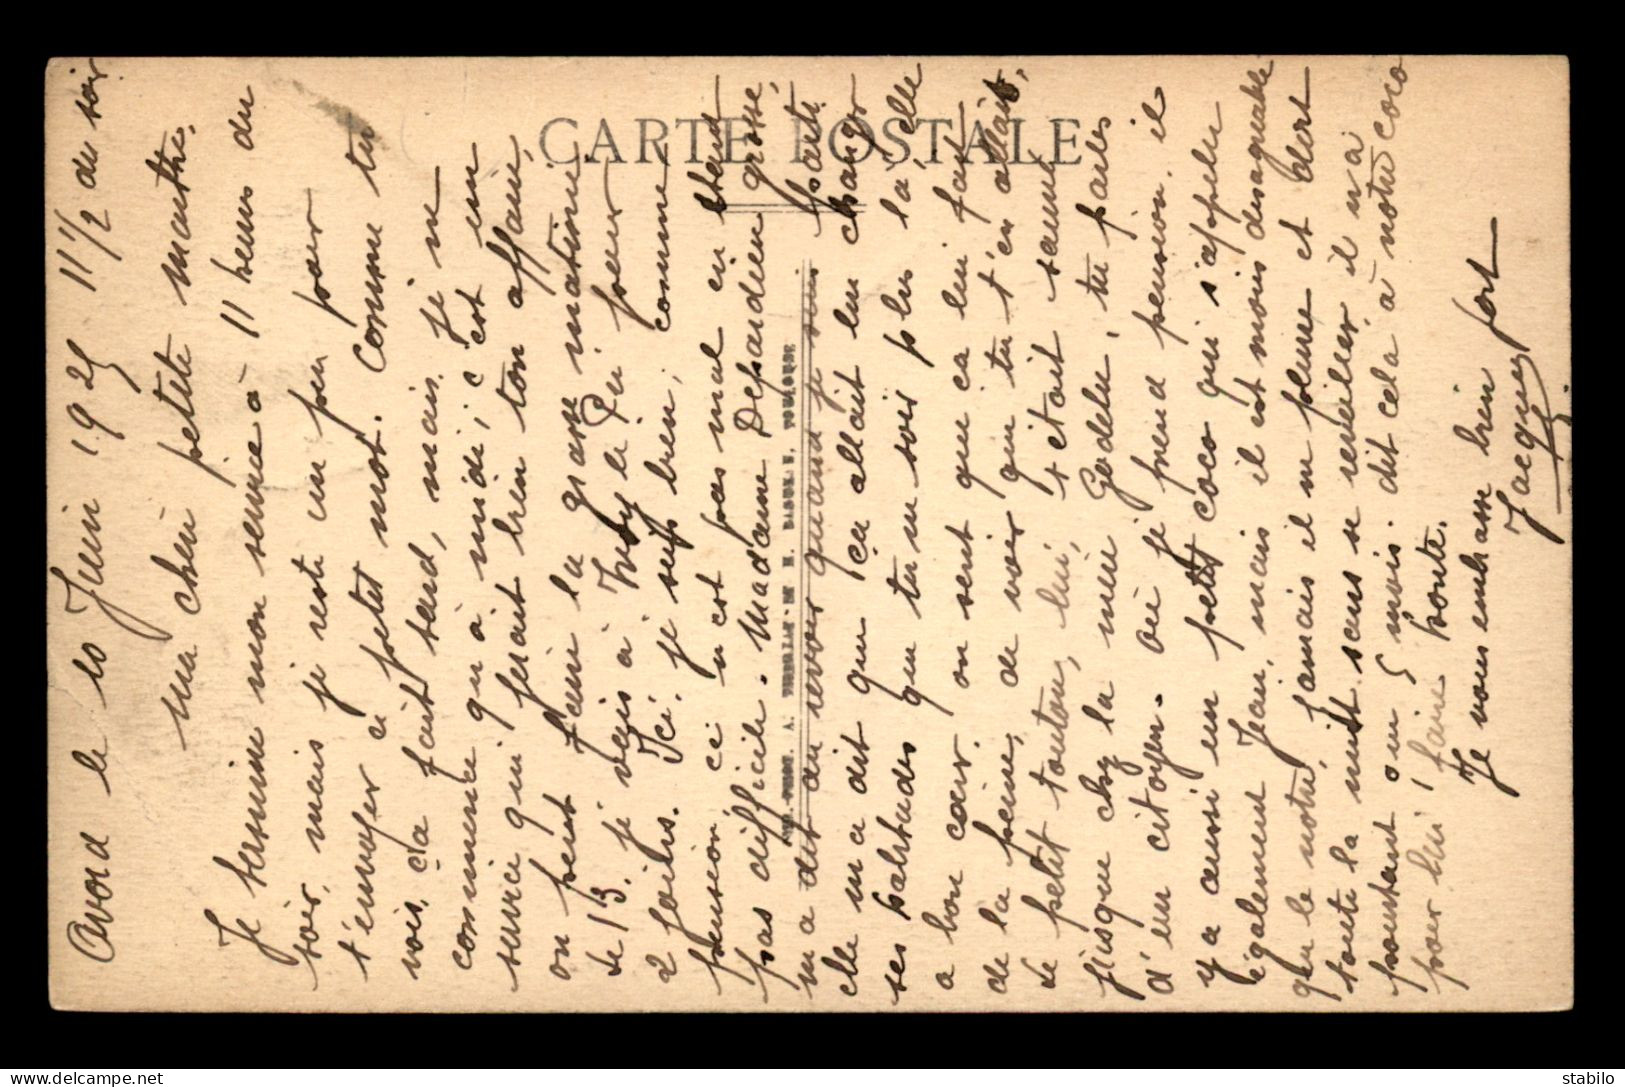 Avord le 10 Juin 1925 11 1/2 du soir
Ma chère petite
Je termine mon service à 11 heures du
soir, mais je reste un peu pour
t'envoyer ce petit mot. Comme tu
vois, ça fait tard, mais je ne
commence qu'à midi, c'est un
service qui ferait bien ton affaire,
on peut faire la grasse matinée
le 13. je vais à
2 jours. Ici, je suis bien, comme
pension, ce n'est pas mal en étant
pas difficile. Madame Depardieu grosse,
m'a dit au revoir quand je suis parti
elle m'a dit que ça allait lui changer
ses habitudes que tu ne sois plus là, elle
a bon cœur. on sent que ça lui fait
de la peine, de voir que tu t'en allais,
le petit toutou, lui, était
jusque chez la mère Godelu, tu parles
d'un citoyen. où je prend pension, il
y a aussi un petit coco qui s'appelle
également Jean, mais il est moins désagréable
que le nôtre, jamais il ne pleure et dort
toute la nuit sans se réveiller, il n'a
pourtant que 5 mois. dit cela à notre coco
pour lui faire honte.
Je vous embrasse bien fort
Jacques
CARTE POSTALE
TOULOUSE